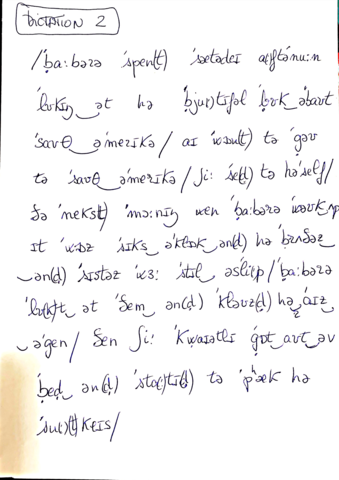 DICTATION 2
/ˈbɑ:bərə ˈspen(t) ˈsætədeɪ ɑ:ftənu:n
ˈlʊkɪŋ‿ət hə ˈbju(:)tɪfəl ˈbʊk‿əbaʊt
ˈsaʊθ‿əˈmerɪkə / aɪ ˈwɒn(t) tə ˈgəʊ
tə ˈsaʊθ‿əˈmerɪkə / ʃi: ˈse(d) tə həˈself /
ðə ˈneks(t) ˈmɔ:nɪŋ wen ˈbɑ:bərə ˈwəʊk‿ʌp
ɪt ˈwəz ˈsɪks‿əˈklɒk‿ən(d) hə ˈbrʌðəz
‿ən(d) ˈsɪstəz wɜ: ˈstɪl əsli:p / ˈbɑ:bərə
ˈlʊk(t)‿ət ˈðem ən(d) ˈkləʊz(d) hə‿ˈaɪz
‿əgen / ðen ʃi: ˈkwaɪətli ˈgɒt‿aʊt‿əv
ˈbed‿ən(d) ˈstɑ(:)tɪ(d) tə ˈpʰæk hə
ˈsu(:)(t)keɪs /